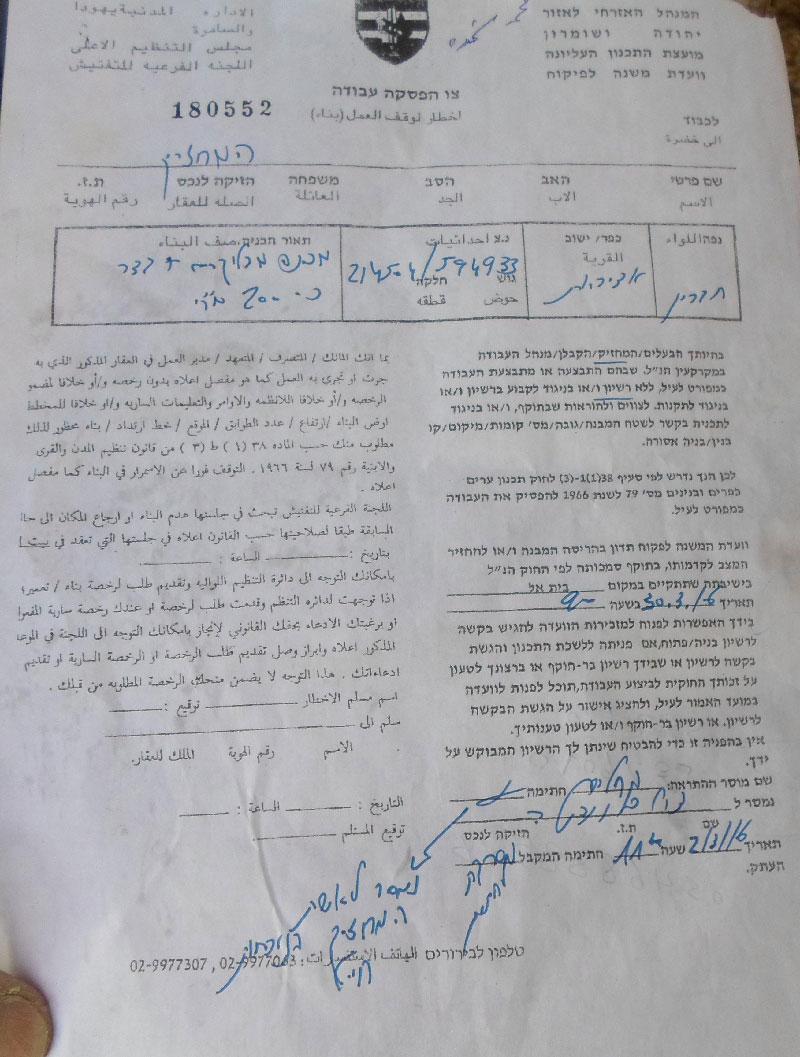 המנהל האזרחי לאזור
יהודה ושומרון
מועצת התכנון העליונה
וועדת משנה לפיקוח
الاداره المدنية يهودا
والسامرة
مجلس التنظيم الاعلى
اللجنه الفرعيه للتفتيش
צו הפסקה עבודה
اخطار لوقف العمل (بناء)
180552
לכבוד
الى حضرة
המחזיק
שם פרטי האב הסב משפחה הזיקה לנכס ת.ז.
الاسم الاب الجد العائلة الصله للعقار رقم الهوية
נפה/اللواء כפר/ ישוב נ.צ احداثيات תאור הבניה, صف البناء
القرية
214504/594933
גוש חלקה
حوض قطعه
כ- 200 מ"ר
בהיותך הבעלים/המחזיק/הקבלן/מנהל העבודה
במקרקעין הנ"ל, שבהם התבצעה או מתבצעת העבודה
כמפורט לעיל, ללא רשיון ו/או בניגוד לקבוע ברשיון ו/או
בניגוד לתקנות, לצווים ולהוראות שבתוקף, ו/או בניגוד
לתכנית בקשר לשטח המבנה/גובה/מס' קומות/מיקום/קו
בנין/בניה אסורה.
לכן הנך נדרש לפי סעיף 38(1)-(3) לחוק תכנון ערים
כפרים ובנינים מס' 79 לשנת 1966 להפסיק את העבודה
כמפורט לעיל.
וועדת המשנה לפקוח תדון בהריסה המבנה ו/או להחזיר
המצב לקדמותו, בתוקף סמכותה לפי החוק הנ"ל
בישיבתה שתתקיים במקום בית אל
תאריך 30.3.16 בשעה 9
בידך האפשרות לפנות למזכירות הוועדה להגיש בקשה
לרשיון בניה/פתוח, אם פניתה ללשכת התכנון והגשת
בקשה לרשיון או שבידך רשיון בר-תוקף או ברצונך לטעון
על זכותך החוקית לביצוע העבודה, תוכל לפנות לוועדה
במועד האמור לעיל, ולהציג אישור על הגשת הבקשה
לרשיון, או רשיון בר-תוקף ו/או לטעון טענותיך.
אין בהפניה זו כדי להבטיח שינתן לך הרשיון המבוקש על
ידך.
שם מוסר ההתראה: חתימה
נמסר ל
שם ת.ז. הזיקה לנכס
תאריך 2/3/16 שעה חתימה המקבל
העתק.
بما انك المالك / المتصرف / المتعهد / مدير العمل في العقار المذكور الذي به
جرت او تجرى به العمل كما هو مفصل اعلاه بدون رخصه و/أو خلافا لمضمو
الرخصه و/أو خلافا للانظمه والاوامر والتعليمات الساريه و/او خلافا للمخطط
اوض البناء /ارتفاع / عدد الطوابق / الموقع / خط ارتداد / بناء محظور لذلك
مطلوب منك حسب الماده ٣٨ (١) ط (٣) من قانون تنظيم المدن والقرى
والابنية رقم ٧٩ لسنة ١٩٦٦ . التوقف فورا عن الاستمرار في البناء كما مفصل
اعلاه .
اللجنه الفرعية للتفتيش تبحث في جلستها هدم البناء او ارجاع المكان الى حا
السابقة طبقا لصلاحيتها حسب القانون اعلاه في جلستها التي تعقد في بيت ا
بتاريخ: الساعة :
بامكانك التوجه الى دائرة التنظيم اللوائيه وتقديم طلب لرخصة بناء / تعمير؛
اذا توجهت لدائره التنظم وقدمت طلب لرخصة او عندك رخصة سارية المفعوا
او برغبتك الادعاء بحقك القانوني لإنجاز بامكانك التوجه الى اللجنة في الموعا
المذكور اعلاه وابراز وصل تقديم طلب الرخصة او الرخصة السارية او تقديم
ادعاءاتك . هذا التوجه لا يضمن منحك الرخصة المطلوبه من قبلك .
اسم مسلم الاخطار توقيع :
سلم الى
الاسم رقم الهوية المالك للعقار.
التاريخ : الساعة :
توقيع المستلم
נמסר לאשת
המחזיק
טלפון לבירורים الهاتف للاستفسارات: 02-9977063 , 02-9977307